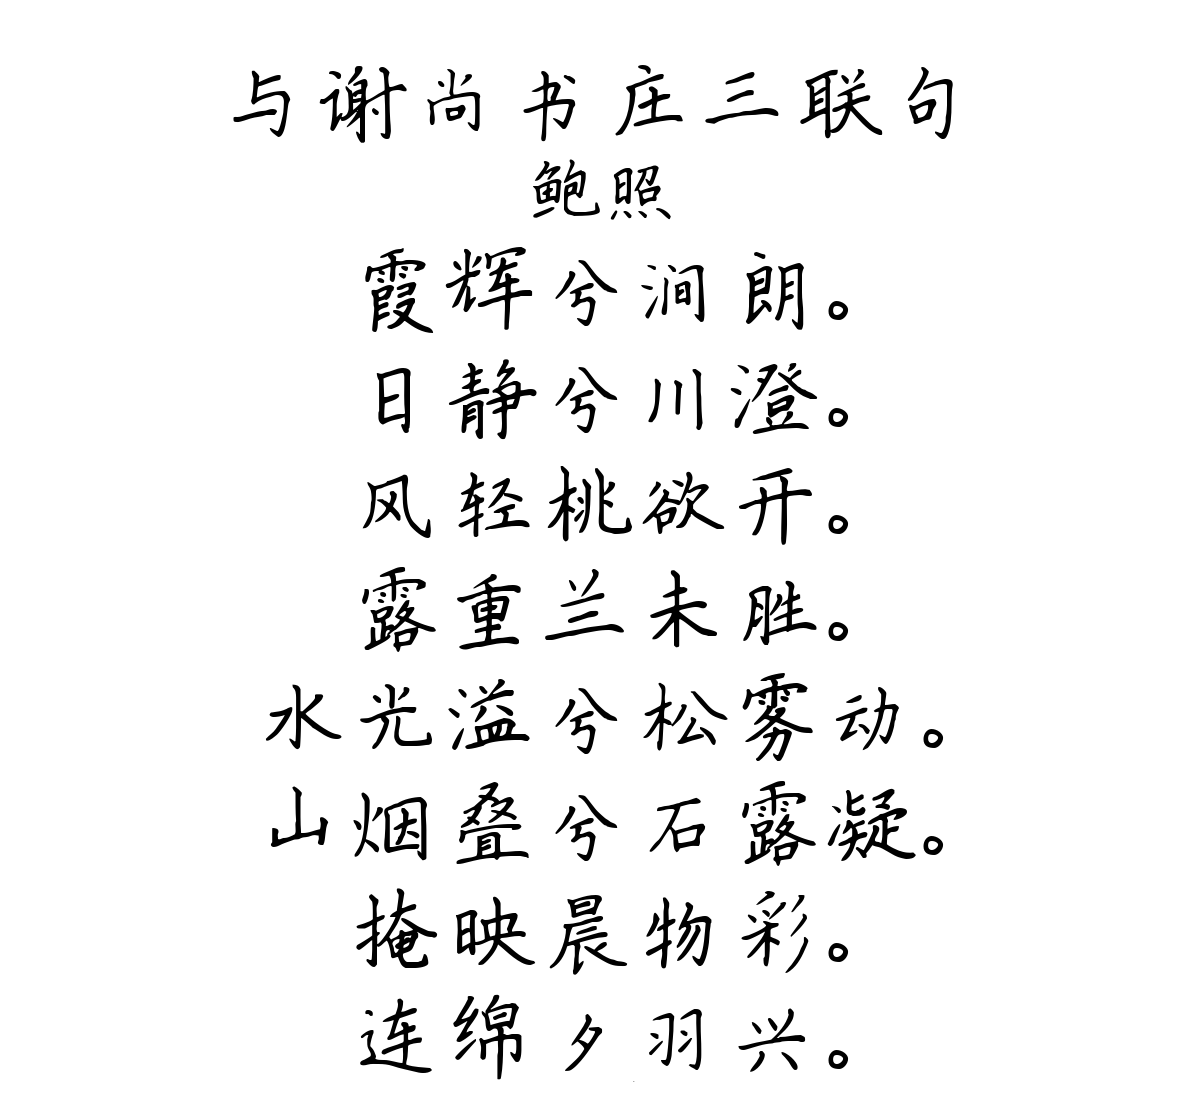 与谢尚书庄三联句
鲍照
霞辉兮涧朗。
日静兮川澄。
风轻桃欲开。
露重兰未胜。
水光溢兮松雾动。
山烟叠兮石露凝。
掩映晨物彩。
连绵夕羽兴。